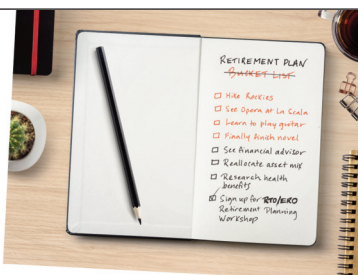 RETIREMENT PLAN
BUCKET LIST
Hike Rockies
See Opera at La Scala
Learn to play guitar
Finally finish novel
See financial advisor
Reallocate asset mix
Research health
benefits
Sign up for RTO/ERO
Retirement Planning
Workshop